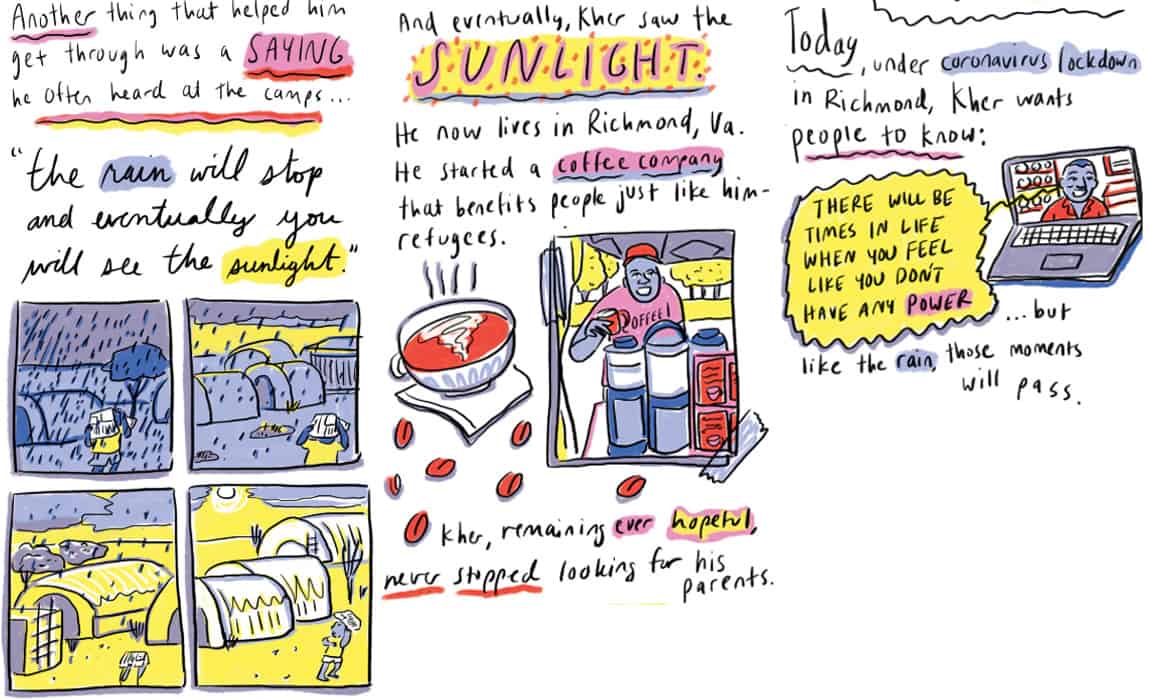 Another thing that helped him
get through was a SAYING
he often heard at the camps...
"the rain will stop
and eventually you
will see the sunlight."
And eventually, Kher saw the
SUNLIGHT.
He now lives in Richmond, Va.
He started a coffee company
that benefits people just like him-
refugees.
COFFEE!
Kher, remaining ever hopeful,
never stopped looking for his
parents.
Today, under coronavirus lockdown
in Richmond, Kher wants
people to know:
THERE WILL BE
TIMES IN LIFE
WHEN YOU FEEL
LIKE YOU DON'T
HAVE ANY POWER
...but
like the rain, those moments
will pass.